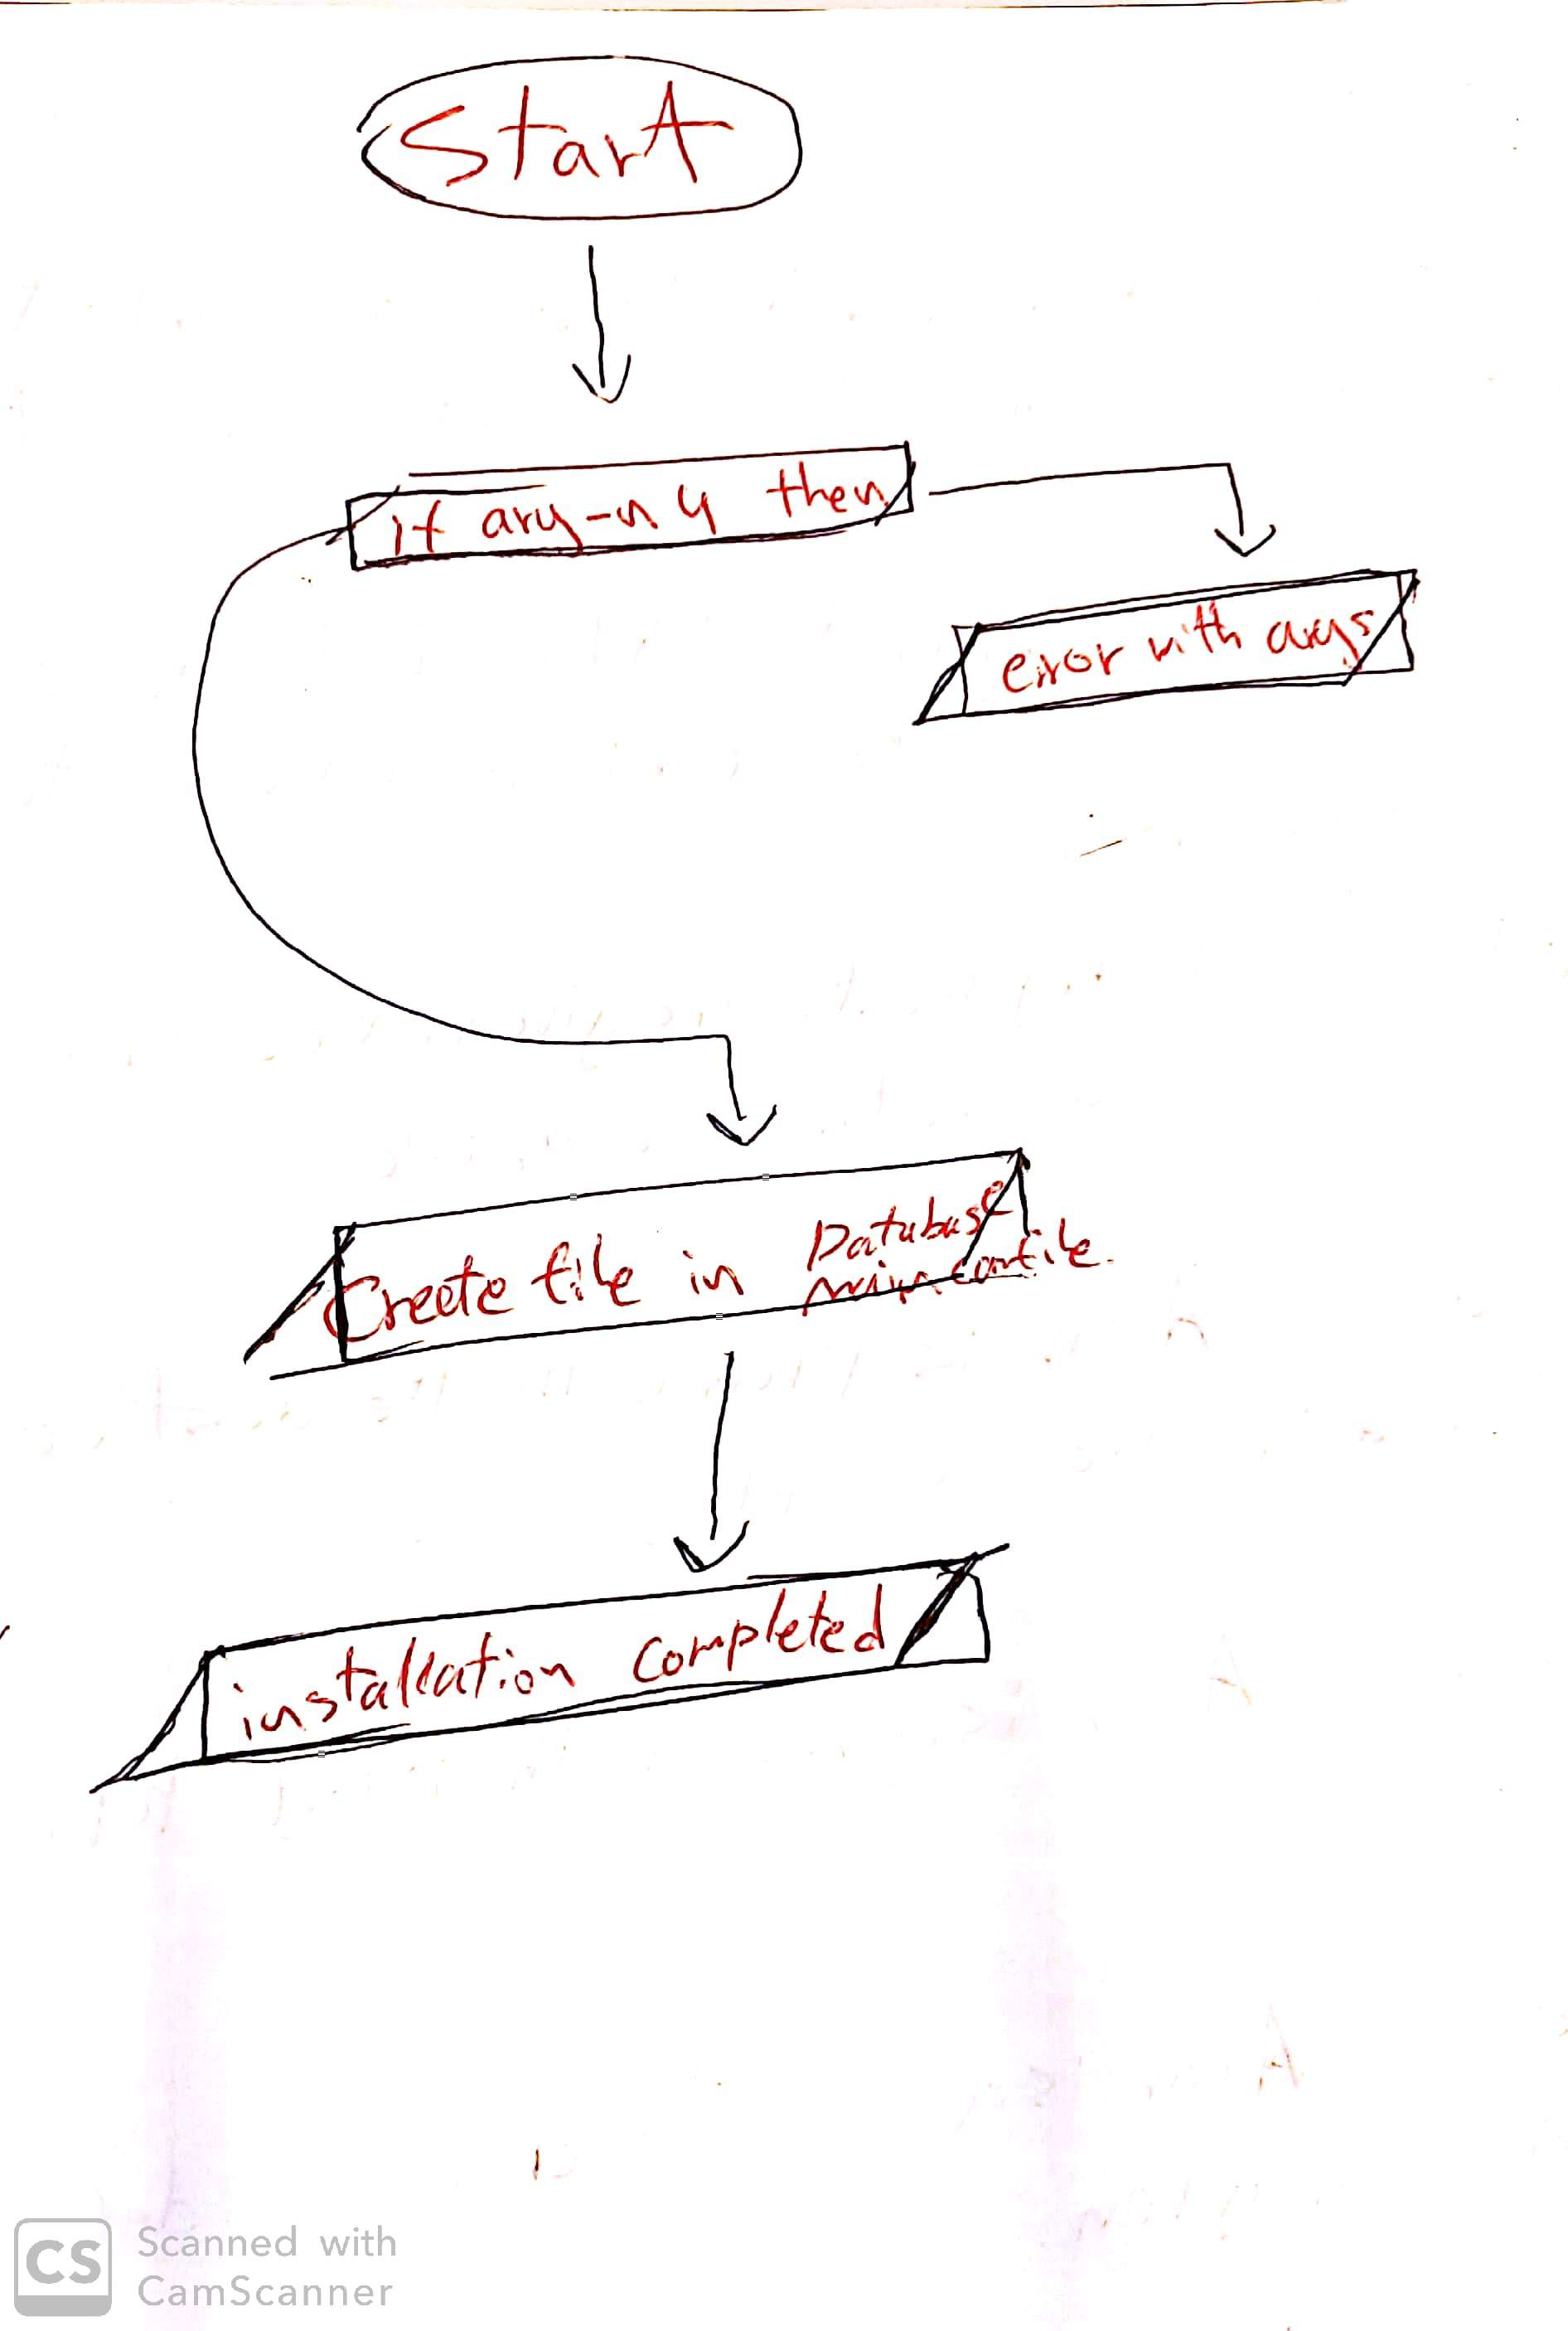 Start
if arg-n 4 then
error with args
Create file in Database
installation completed
CS Scanned with
CamScanner